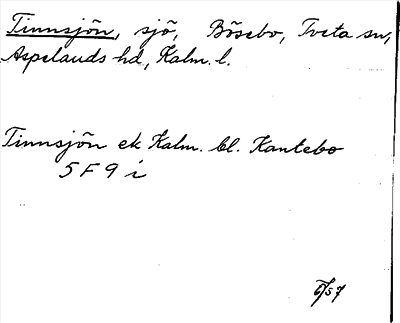 Tinnsjön, sjö, Bösebo, Tveta sn,
Aspelands hd, Kalm. l.
Tinnsjön ek Kalm. bl. Kantebo
5 F 9 i
6/57